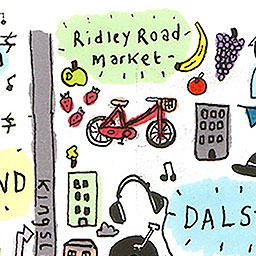 Ridley Road
Market
ND
KINGSL
DALS